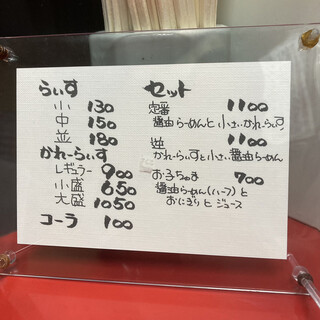 らぃす
小 130
中 150
並 180
かれーらぃす
レギュラー 900
小盛 650
大盛 1050
コーラ 100
セット
定番 1100
醤油らーめんと小さぃかれーらぃす
逆 1100
かれーらぃすと小さぃ醤油らーめん
お子ちゃま 700
醤油らーめん(ハーフ)と
おにぎりとジュース